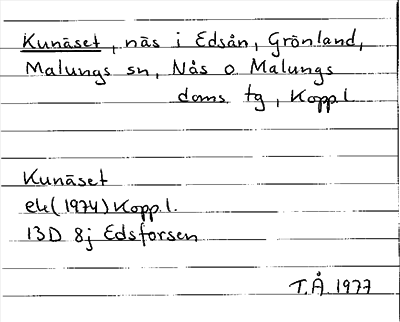 Kunäset, näs i Edsån, Grönland,
Malungs sn, Nås o Malungs
doms tg, Kopp.l.
Kunäset
ek (1974) Kopp.l.
13D 8j Edsforsen
T.Å. 1977